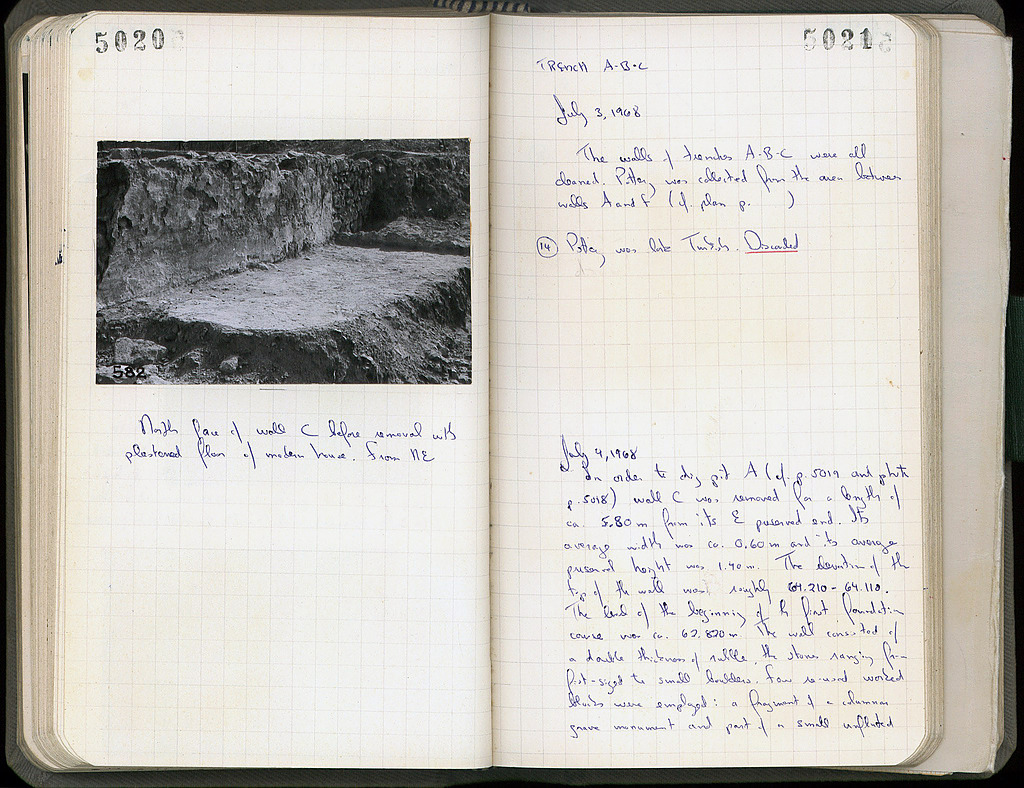 5020
582
North face of wall C before removal with
plastered floor of modern house. From NE
5021
TRENCH A-B-C
July 3, 1968
The walls of trenches A-B-C were all
cleaned. Pottery was collected from the area between
walls A and F (cf. plan p. )
14 Pottery was late Turkish. Discarded
July 4, 1968
In order to dig pit A (cf. p. 5019 and photo
p. 5018) wall C was removed for a length of
ca. 5.80 m from its E preserved end. Its
average width was ca. 0.60 m and its average
preserved height was 1.40 m. The elevation of the
top of the wall was roughly 64.210 - 64.110.
The level of the beginning of the first foundation
course was ca. 62.820 m. The wall consisted of
a double thickness of rubble, the stones ranging from
fist-sized to small boulders. Few re-used worked
blocks were employed: a fragment of a columnar
grave monument and part of a small unfluted